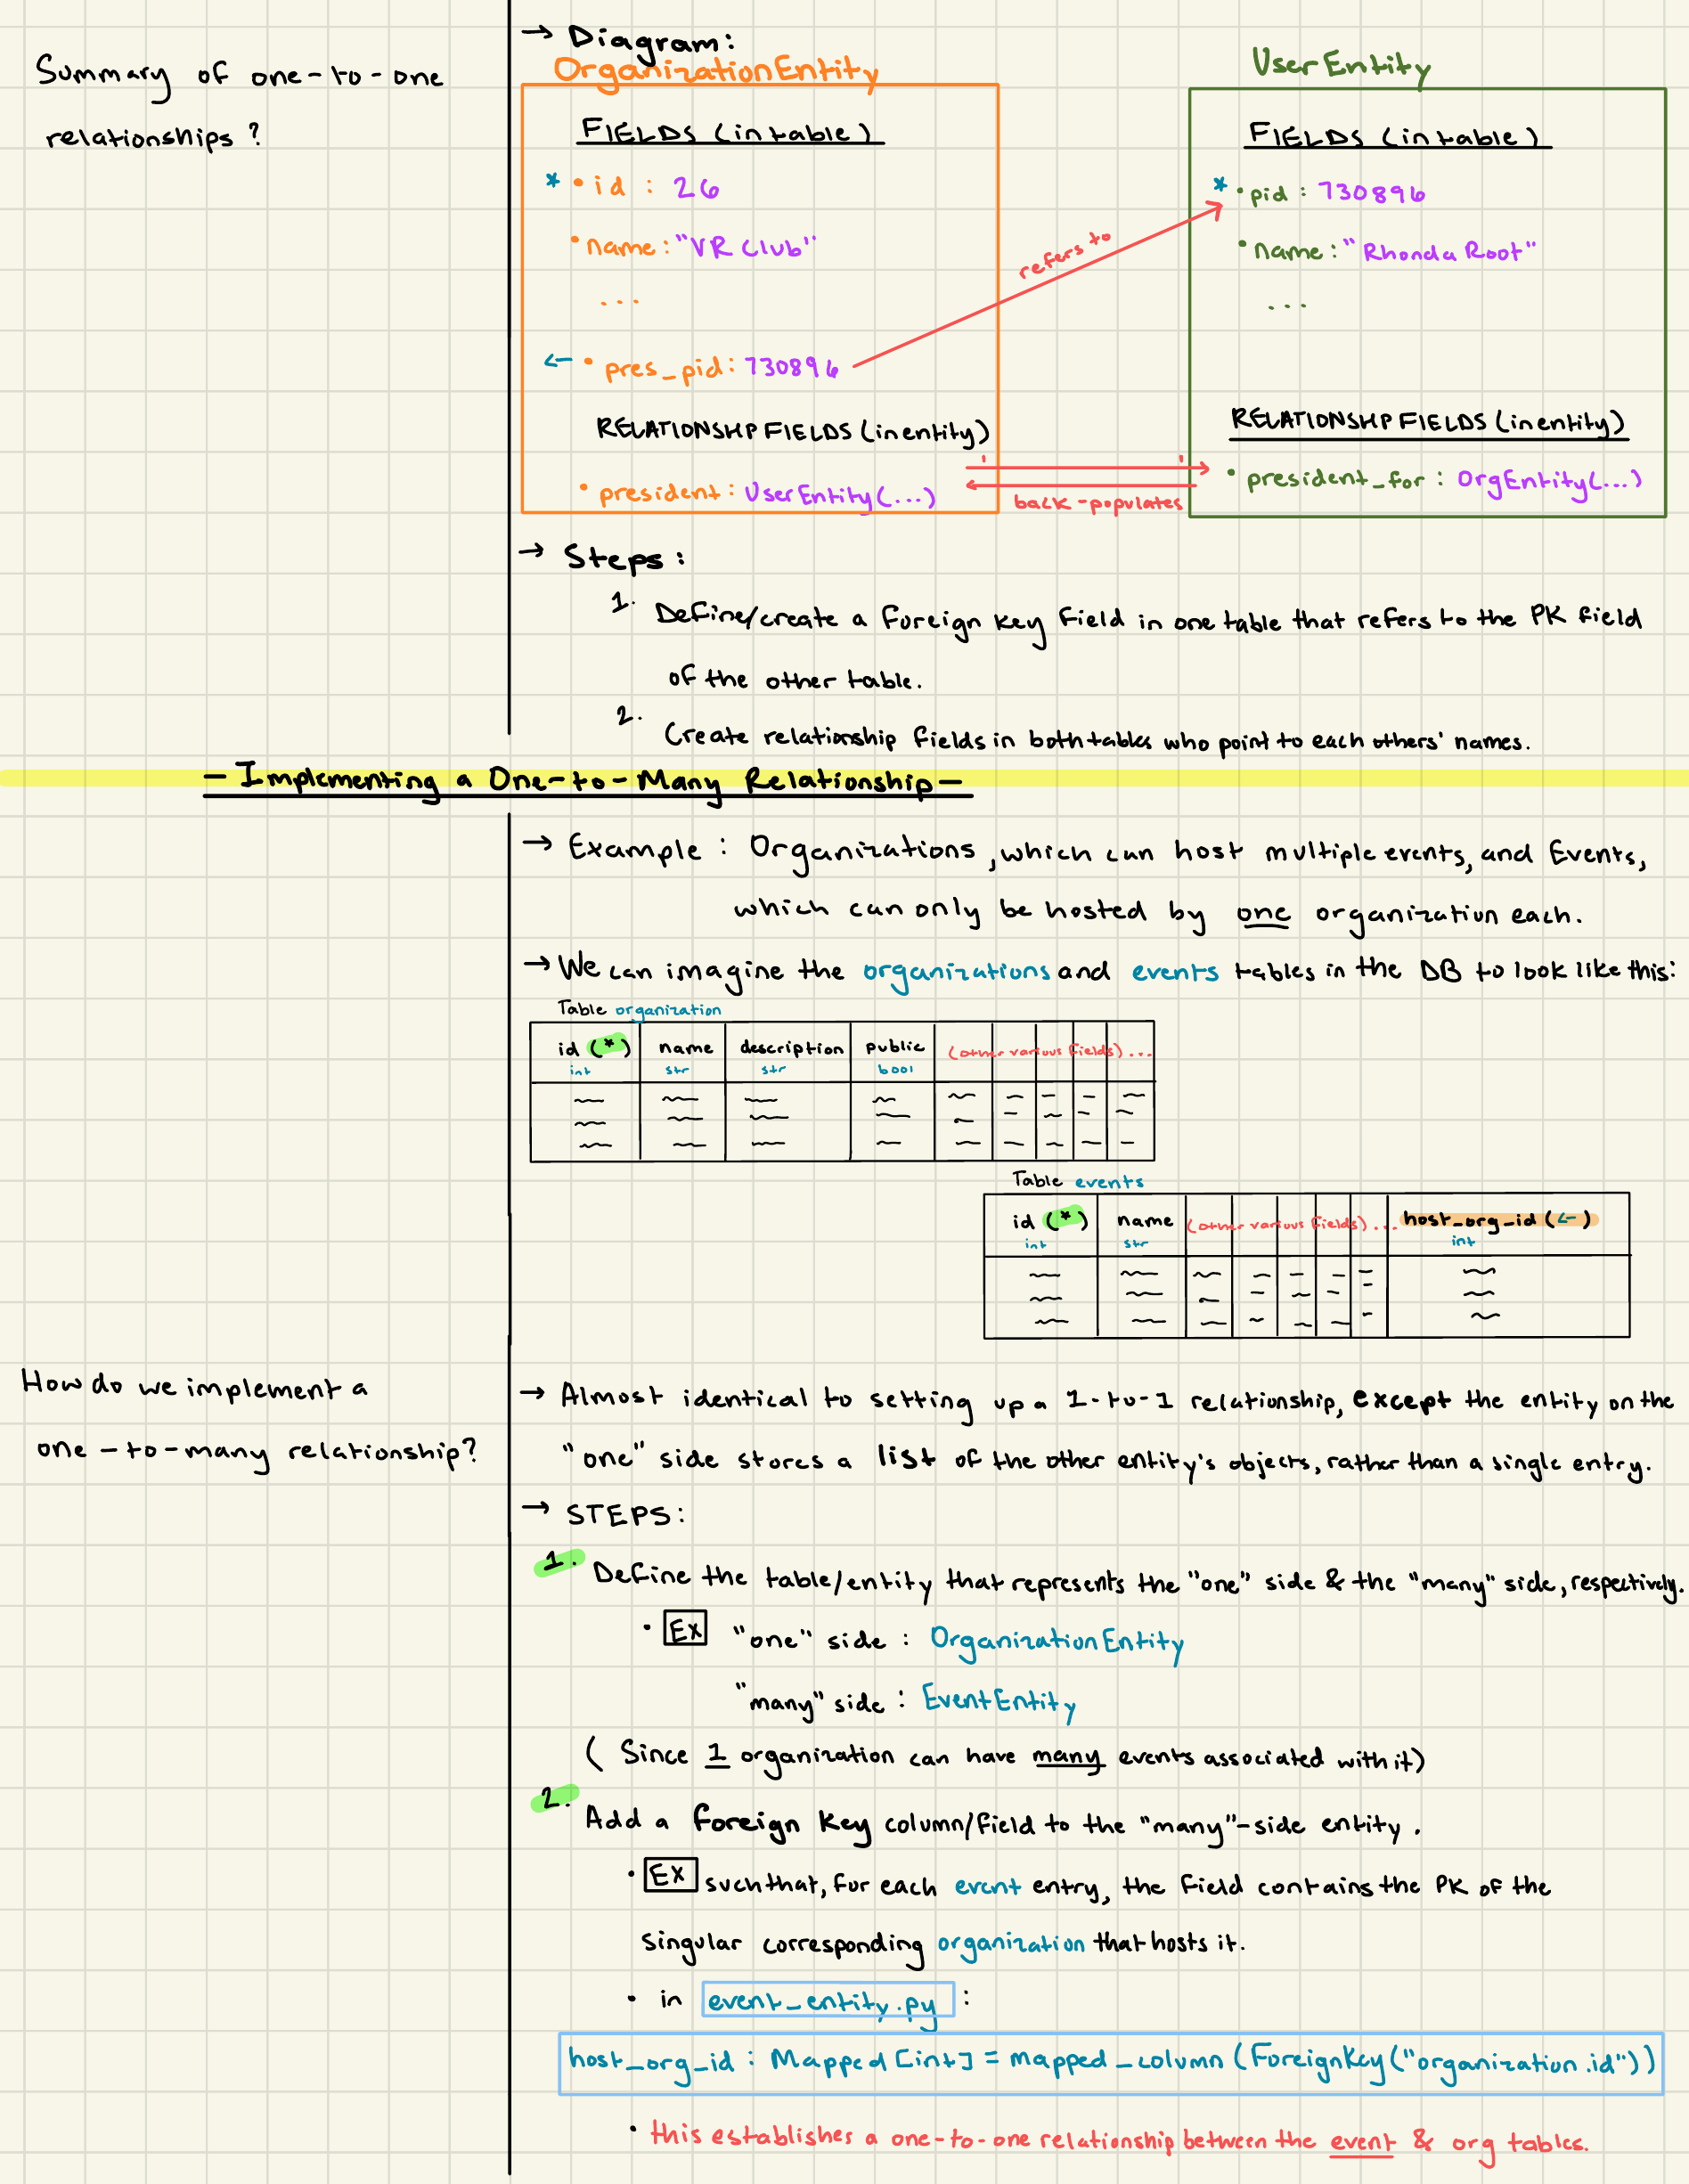 Summary of one-to-one
relationships?
→ Diagram:
OrganizationEntity
FIELDS (in table)
* • id : 26
• name: "VR Club"
...
← • pres_pid: 730896
RELATIONSHP FIELDS (in entity)
• president: UserEntity(...)
refers to
back-populates
UserEntity
FIELDS (in table)
* • pid : 730896
• name: "Rhonda Root"
...
RELATIONSHP FIELDS (in entity)
• president_for : OrgEntity(...)
→ Steps:
1. Define/create a foreign key field in one table that refers to the PK field
of the other table.
2. Create relationship fields in both tables who point to each others' names.
— Implementing a One-to-Many Relationship —
→ Example : Organizations, which can host multiple events, and Events,
which can only be hosted by one organization each.
→ We can imagine the organizations and events tables in the DB to look like this:
Table organization
id (*) name description public (other various fields)...
int str str bool
Table events
id (*) name (other various fields)... host_org_id (←)
int str int
How do we implement a
one-to-many relationship?
→ Almost identical to setting up a 1-to-1 relationship, except the entity on the
"one" side stores a list of the other entity's objects, rather than a single entry.
→ STEPS:
1. Define the table/entity that represents the "one" side & the "many" side, respectively.
• EX "one" side : OrganizationEntity
"many" side : EventEntity
( Since 1 organization can have many events associated with it)
2. Add a foreign key column/field to the "many"-side entity.
• EX such that, for each event entry, the field contains the PK of the
singular corresponding organization that hosts it.
• in event_entity.py :
host_org_id : Mapped[int] = mapped_column(ForeignKey("organization.id"))
• this establishes a one-to-one relationship between the event & org tables.